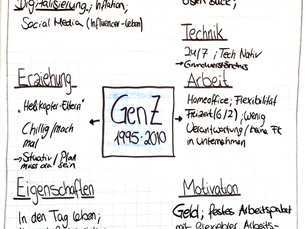 Digitalisierung; Inflation;
Social Media (Influencer-Leben)
Technik
24/7; Tech Nativ
→ Grundverständnis
Erziehung
"Helikopter-Eltern"
Chillig/mach
mal
→ Situativ / Plan
muss da sein
Gen Z
1995-2010
Arbeit
Homeoffice; Flexibilität
Freizeit (6/2); wenig
Verantwortung / keine Fit
in Unternehmen
Eigenschaften
In den Tag leben;
Motivation
Geld; festes Arbeitspaket
mit flexibler Arbeits-